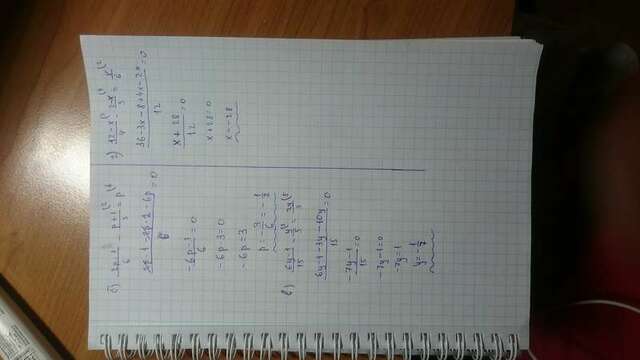 б) (2p-1)/6 - (p+1)/3 = p
(2p-1-2p-2-6p)/6 = 0
(-6p-1)/6 = 0
-6p-3=0
-6p=3
p=-3/6=-1/2
в) (6y-1)/15 - y/5 = 2y/3
(6y-1-3y-10y)/15 = 0
(-7y-1)/15 = 0
-7y-1=0
-7y=1
y=-1/7
г) (12-x)/4 - (2-x)/3 = x/6
(36-3x-8+4x-2x)/12 = 0
(x+28)/12 = 0
x+28=0
x=-28